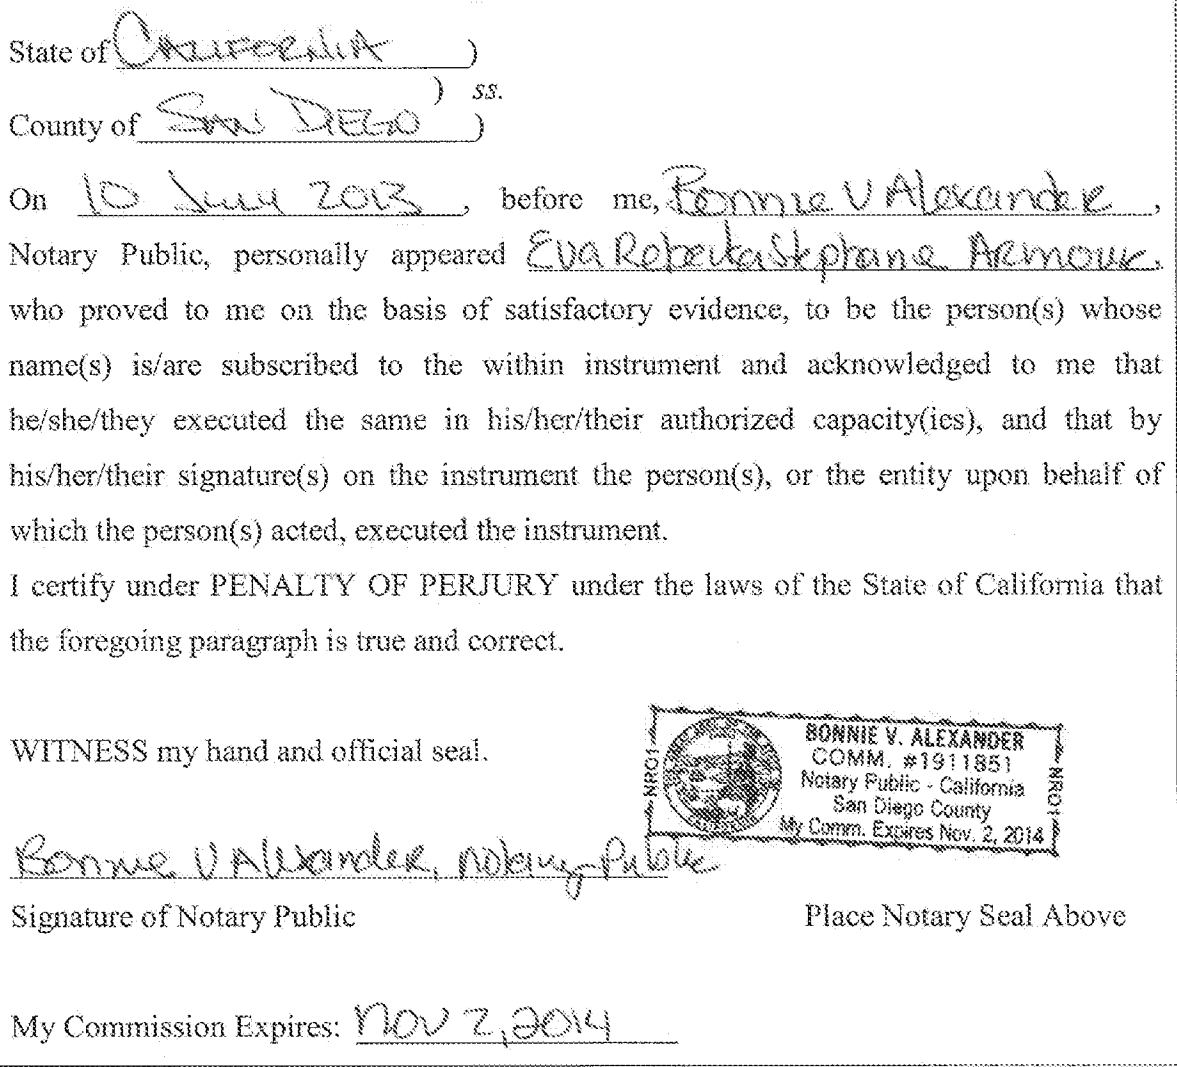 State of CALIFORNIA )
) ss.
County of SAN DIEGO )
On 10 July 2013, before me, Bonnie V Alexander,
Notary Public, personally appeared Eva Roberta Stephane Armour,
who proved to me on the basis of satisfactory evidence, to be the person(s) whose
name(s) is/are subscribed to the within instrument and acknowledged to me that
he/she/they executed the same in his/her/their authorized capacity(ies), and that by
his/her/their signature(s) on the instrument the person(s), or the entity upon behalf of
which the person(s) acted, executed the instrument.
I certify under PENALTY OF PERJURY under the laws of the State of California that
the foregoing paragraph is true and correct.
WITNESS my hand and official seal.
NRO1
BONNIE V. ALEXANDER
COMM. #1911851
Notary Public - California
San Diego County
My Comm. Expires Nov. 2, 2014
NRO1
Bonnie V Alexander, Notary Public
Signature of Notary Public
Place Notary Seal Above
My Commission Expires: Nov 2, 2014